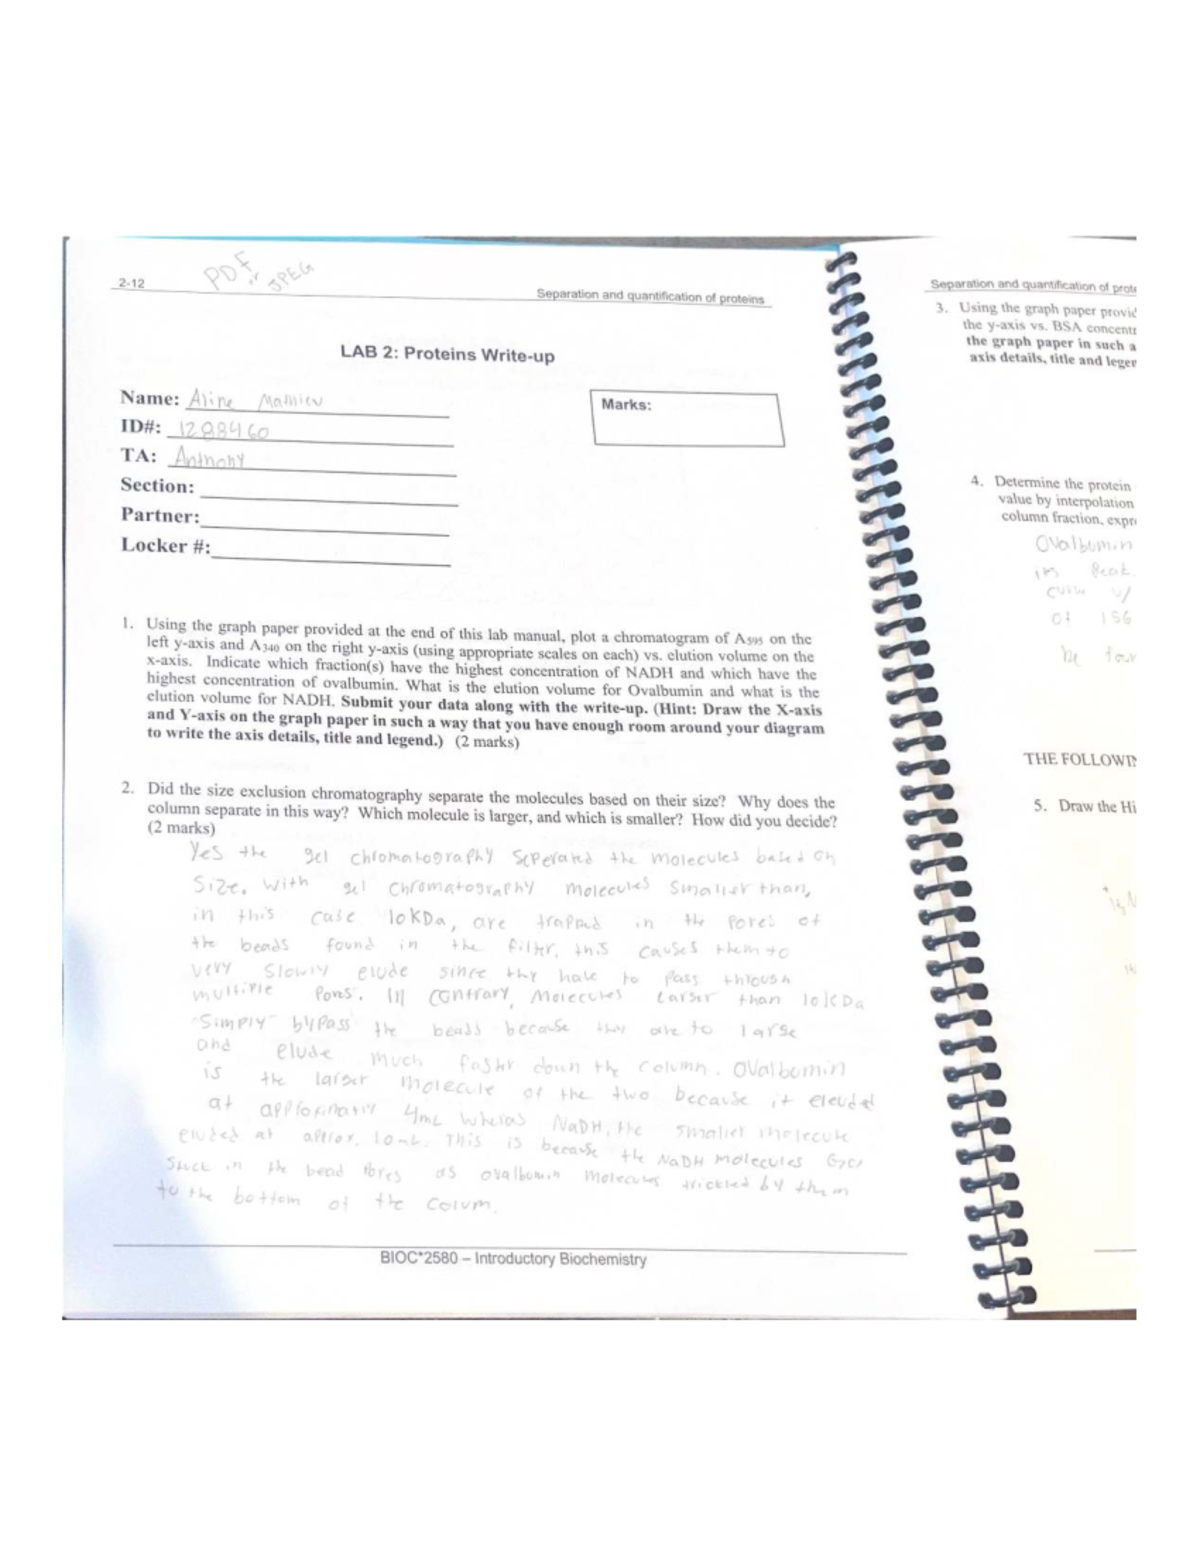 2-12
PDF
or
JPEG
Separation and quantification of proteins
LAB 2: Proteins Write-up
Name: Aline Mathieu
ID#: 1288460
TA: Anthony
Section:
Partner:
Locker #:
Marks:
1. Using the graph paper provided at the end of this lab manual, plot a chromatogram of A595 on the
left y-axis and A340 on the right y-axis (using appropriate scales on each) vs. elution volume on the
x-axis. Indicate which fraction(s) have the highest concentration of NADH and which have the
highest concentration of ovalbumin. What is the elution volume for Ovalbumin and what is the
elution volume for NADH. Submit your data along with the write-up. (Hint: Draw the X-axis
and Y-axis on the graph paper in such a way that you have enough room around your diagram
to write the axis details, title and legend.) (2 marks)
2. Did the size exclusion chromatography separate the molecules based on their size? Why does the
column separate in this way? Which molecule is larger, and which is smaller? How did you decide?
(2 marks)
Yes the gel chromatography seperated the molecules based on
size. With gel chromatography molecules smaller than,
in this case 10kDa, are trapped in the pores of
the beads found in the filter, this causes them to
very slowly elude since thy have to pass through
multiple pores. In contrary, molecules larger than 10kDa
"simply" bypass the beads because they are to large
and elude much faster down the column. Ovalbumin
is the larger molecule of the two because it eleuded
at approximatly 4mL wheras NADH, the smaller molecule
eluded at approx. 10mL. This is because the NADH molecules
stuck in the bead pores as ovalbumin molecules trickled by them
to the bottom of the colum.
BIOC*2580 – Introductory Biochemistry
Separation and quantification of prote
3. Using the graph paper provid
the y-axis vs. BSA concentr
the graph paper in such a
axis details, title and leger
4. Determine the protein
value by interpolation
column fraction, expr
Ovalbumin
its peak
w/
of 156
be
THE FOLLOWIN
5. Draw the Hi